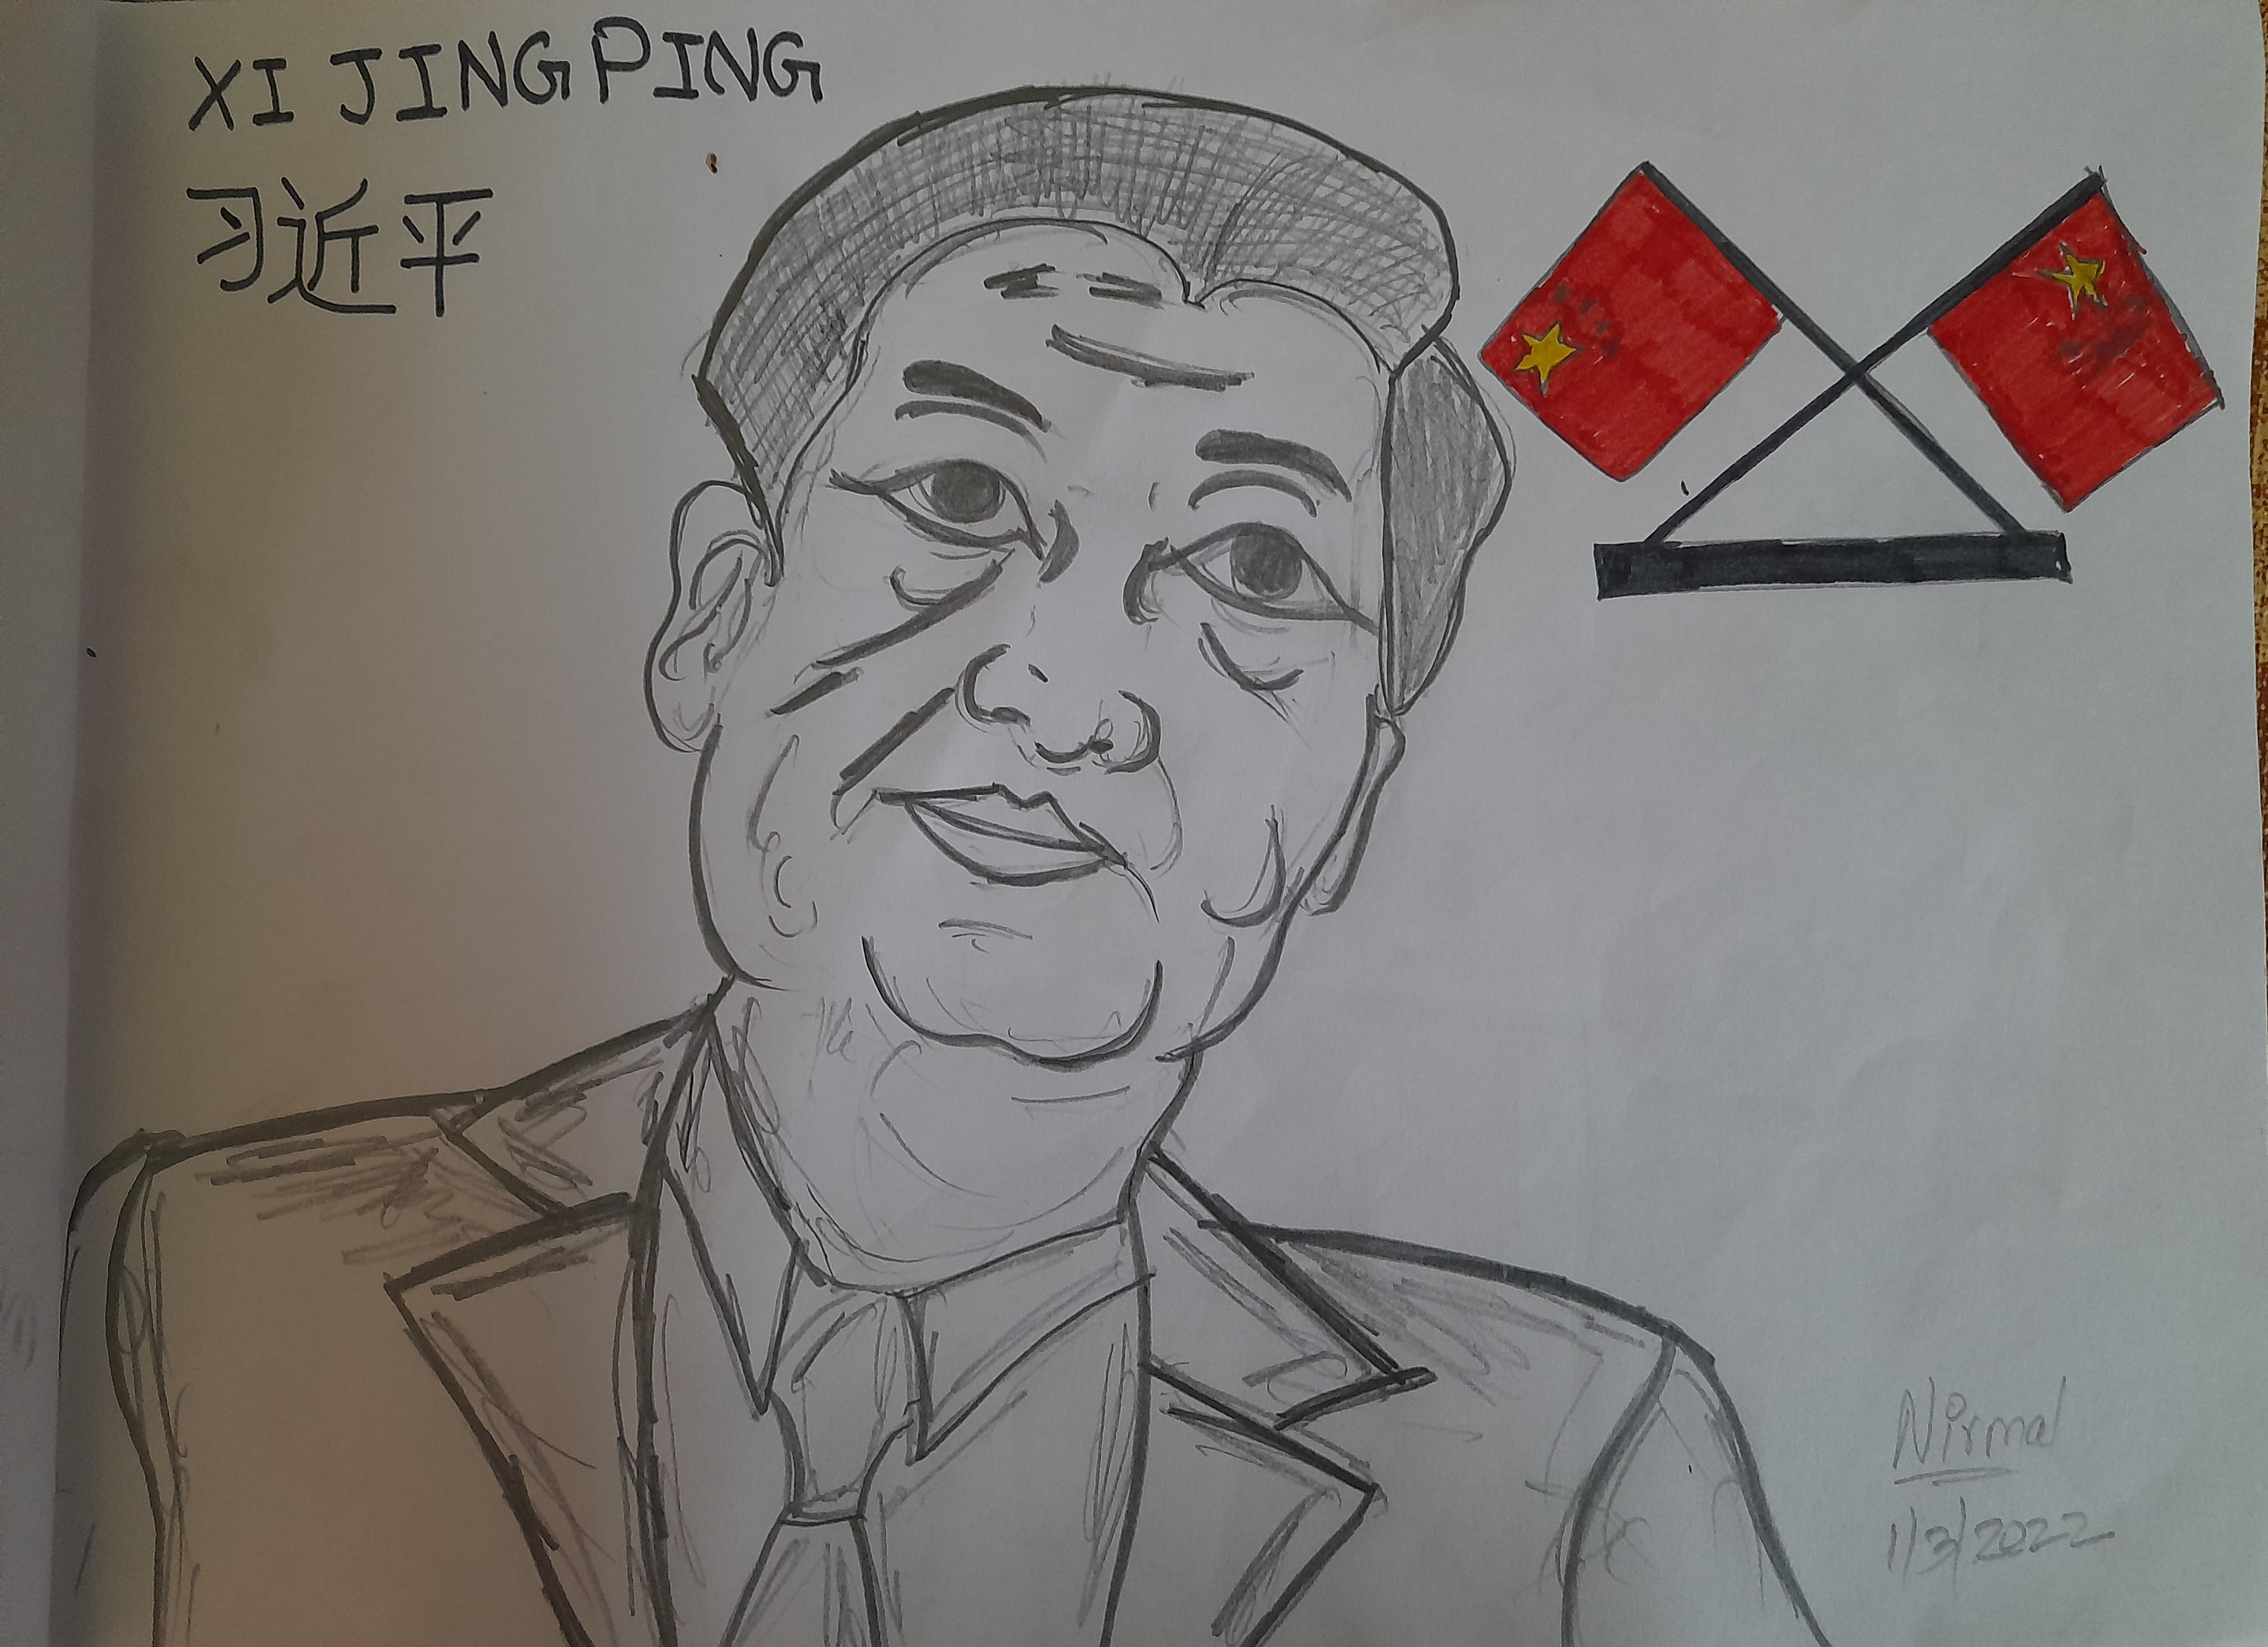 XI JINGPING
习近平
Nirmal
1/3/2022